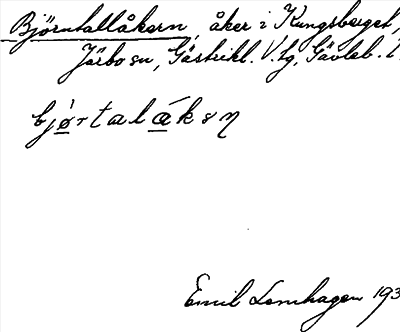 Björntallåkern, åker i Kungsberget,
Järbo sn, Gästrikl. V. tg, Gävleb. l
bjørtalåksn
Emil Lernhagen 193